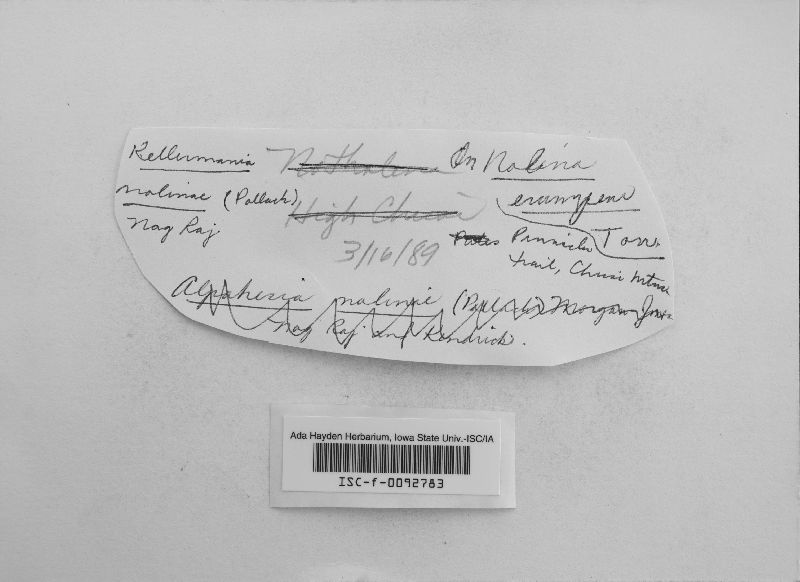 Kellermania
nolinae (Pollack)
Nag Raj
Notholena
High Chisos
3/16/89
On Nolina
erumpens
Torr.
Pinnacle
trail, Chisos Mtns
Alpakesia nolinae (Pollack) Morgan-Jones
Nag Raj and Kendrick.
Ada Hayden Herbarium, Iowa State Univ.-ISC/IA
ISC-f-0092783